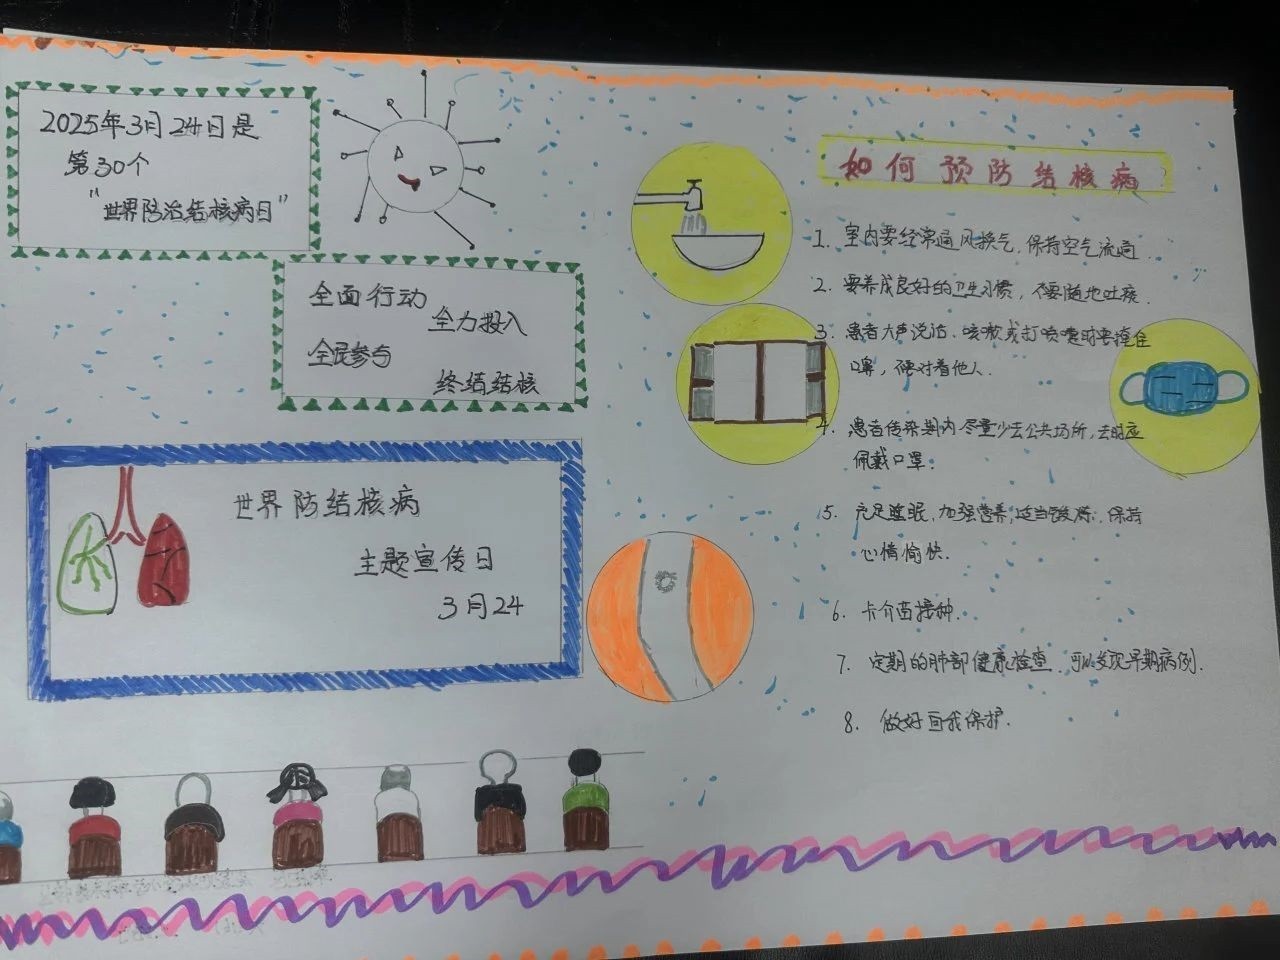 2025年3月24日是
第30个
“世界防治结核病日”
全面行动
全力投入
全民参与
终结结核
世界防结核病
主题宣传日
3月24
如何预防结核病
1. 室内要经常通风换气,保持空气流通.
2. 要养成良好的卫生习惯,不要随地吐痰.
3. 患者大声说话、咳嗽或打喷嚏时要掩住
口鼻,不要对着他人.
4. 患者传染期内尽量少去公共场所,去时应
佩戴口罩.
5. 充足睡眠,加强营养,适当锻炼,保持
心情愉快.
6. 卡介苗接种.
7. 定期的肺部健康检查,可以发现早期病例.
8. 做好自我保护.